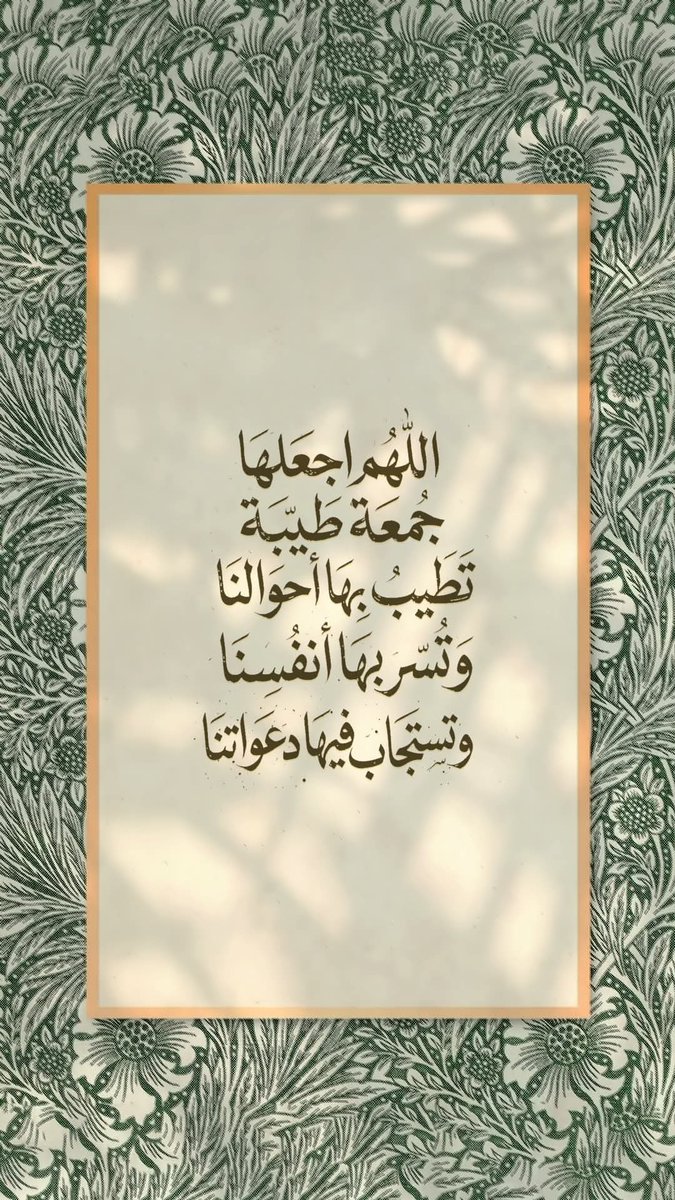 اللّٰهُم اجعَلهَا
جُمعَة طَيّبَة
تَطَيبُ بِهَا أحوَالنَا
وَتُسّر بهَا أنفُسِنَا
وتستجَاب فيهَا دعَواتنَا